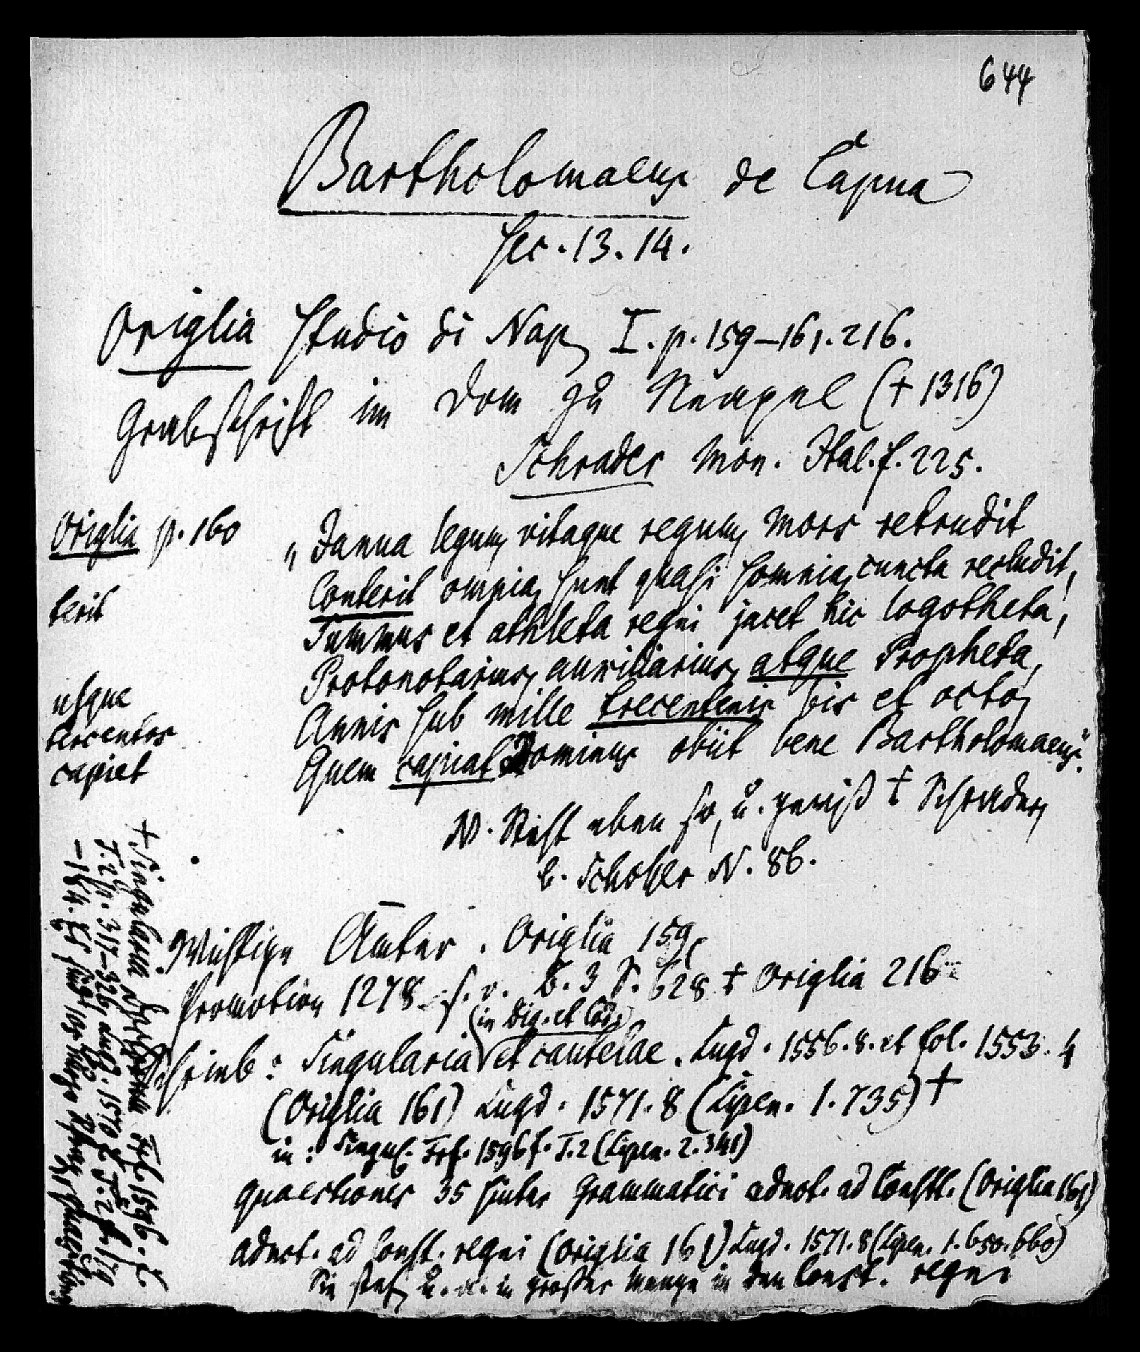 644
Bartholomaeus de Capua
sec. 13. 14.
Origlia Studio di Nap. I. p. 159–161. 216.
Grabschrift im Dom zu Neapel († 1316)
Schrader Mon. Ital. f. 225.
Origlia p. 160 „Janua legum, vitaque regum, mors retrudit
terit Conterit omnia, sunt quasi somnia, cuncta recludit,
Summus et athleta regni jacet hic logotheta,
Protonotarius, auxiliarius, atque Propheta,
usque Annis sub mille trecentenis bis et octo,
tercentos
capiet Quem capiat Dominus obiit bene Bartholomaeus".
N. Steht eben so, u. gewiß † Schrader,
b. Schober N. 86.
Wichtige Ämter. Origlia 159,
Promotion 1278. s. o. B. 3 S. 628 † Origlia 216
(in Dig. et Cod.)
Schrieb: Singularia et cautelae. Lugd. 1556. 8. et fol. 1553. 4
(Origlia 161) Lugd. 1571. 8 (Lipen. 1. 735) †
in: Singul. Frf. 1596 f. T. 2 (Lipen. 2. 341)
Quaestiones 35 hinter Grammatici adnot. ad Constt. (Origlia 161)
adnot. ad Const. regni (Origlia 161) Lugd. 1571. 8 (Lipen. 1. 650. 660)
Sie in großer Menge in den Const. regni
† Singularia Frf. 1596. f.
T. 2. p. 317–326, 1570 f. T. 2. f. 179
–184. Es sind